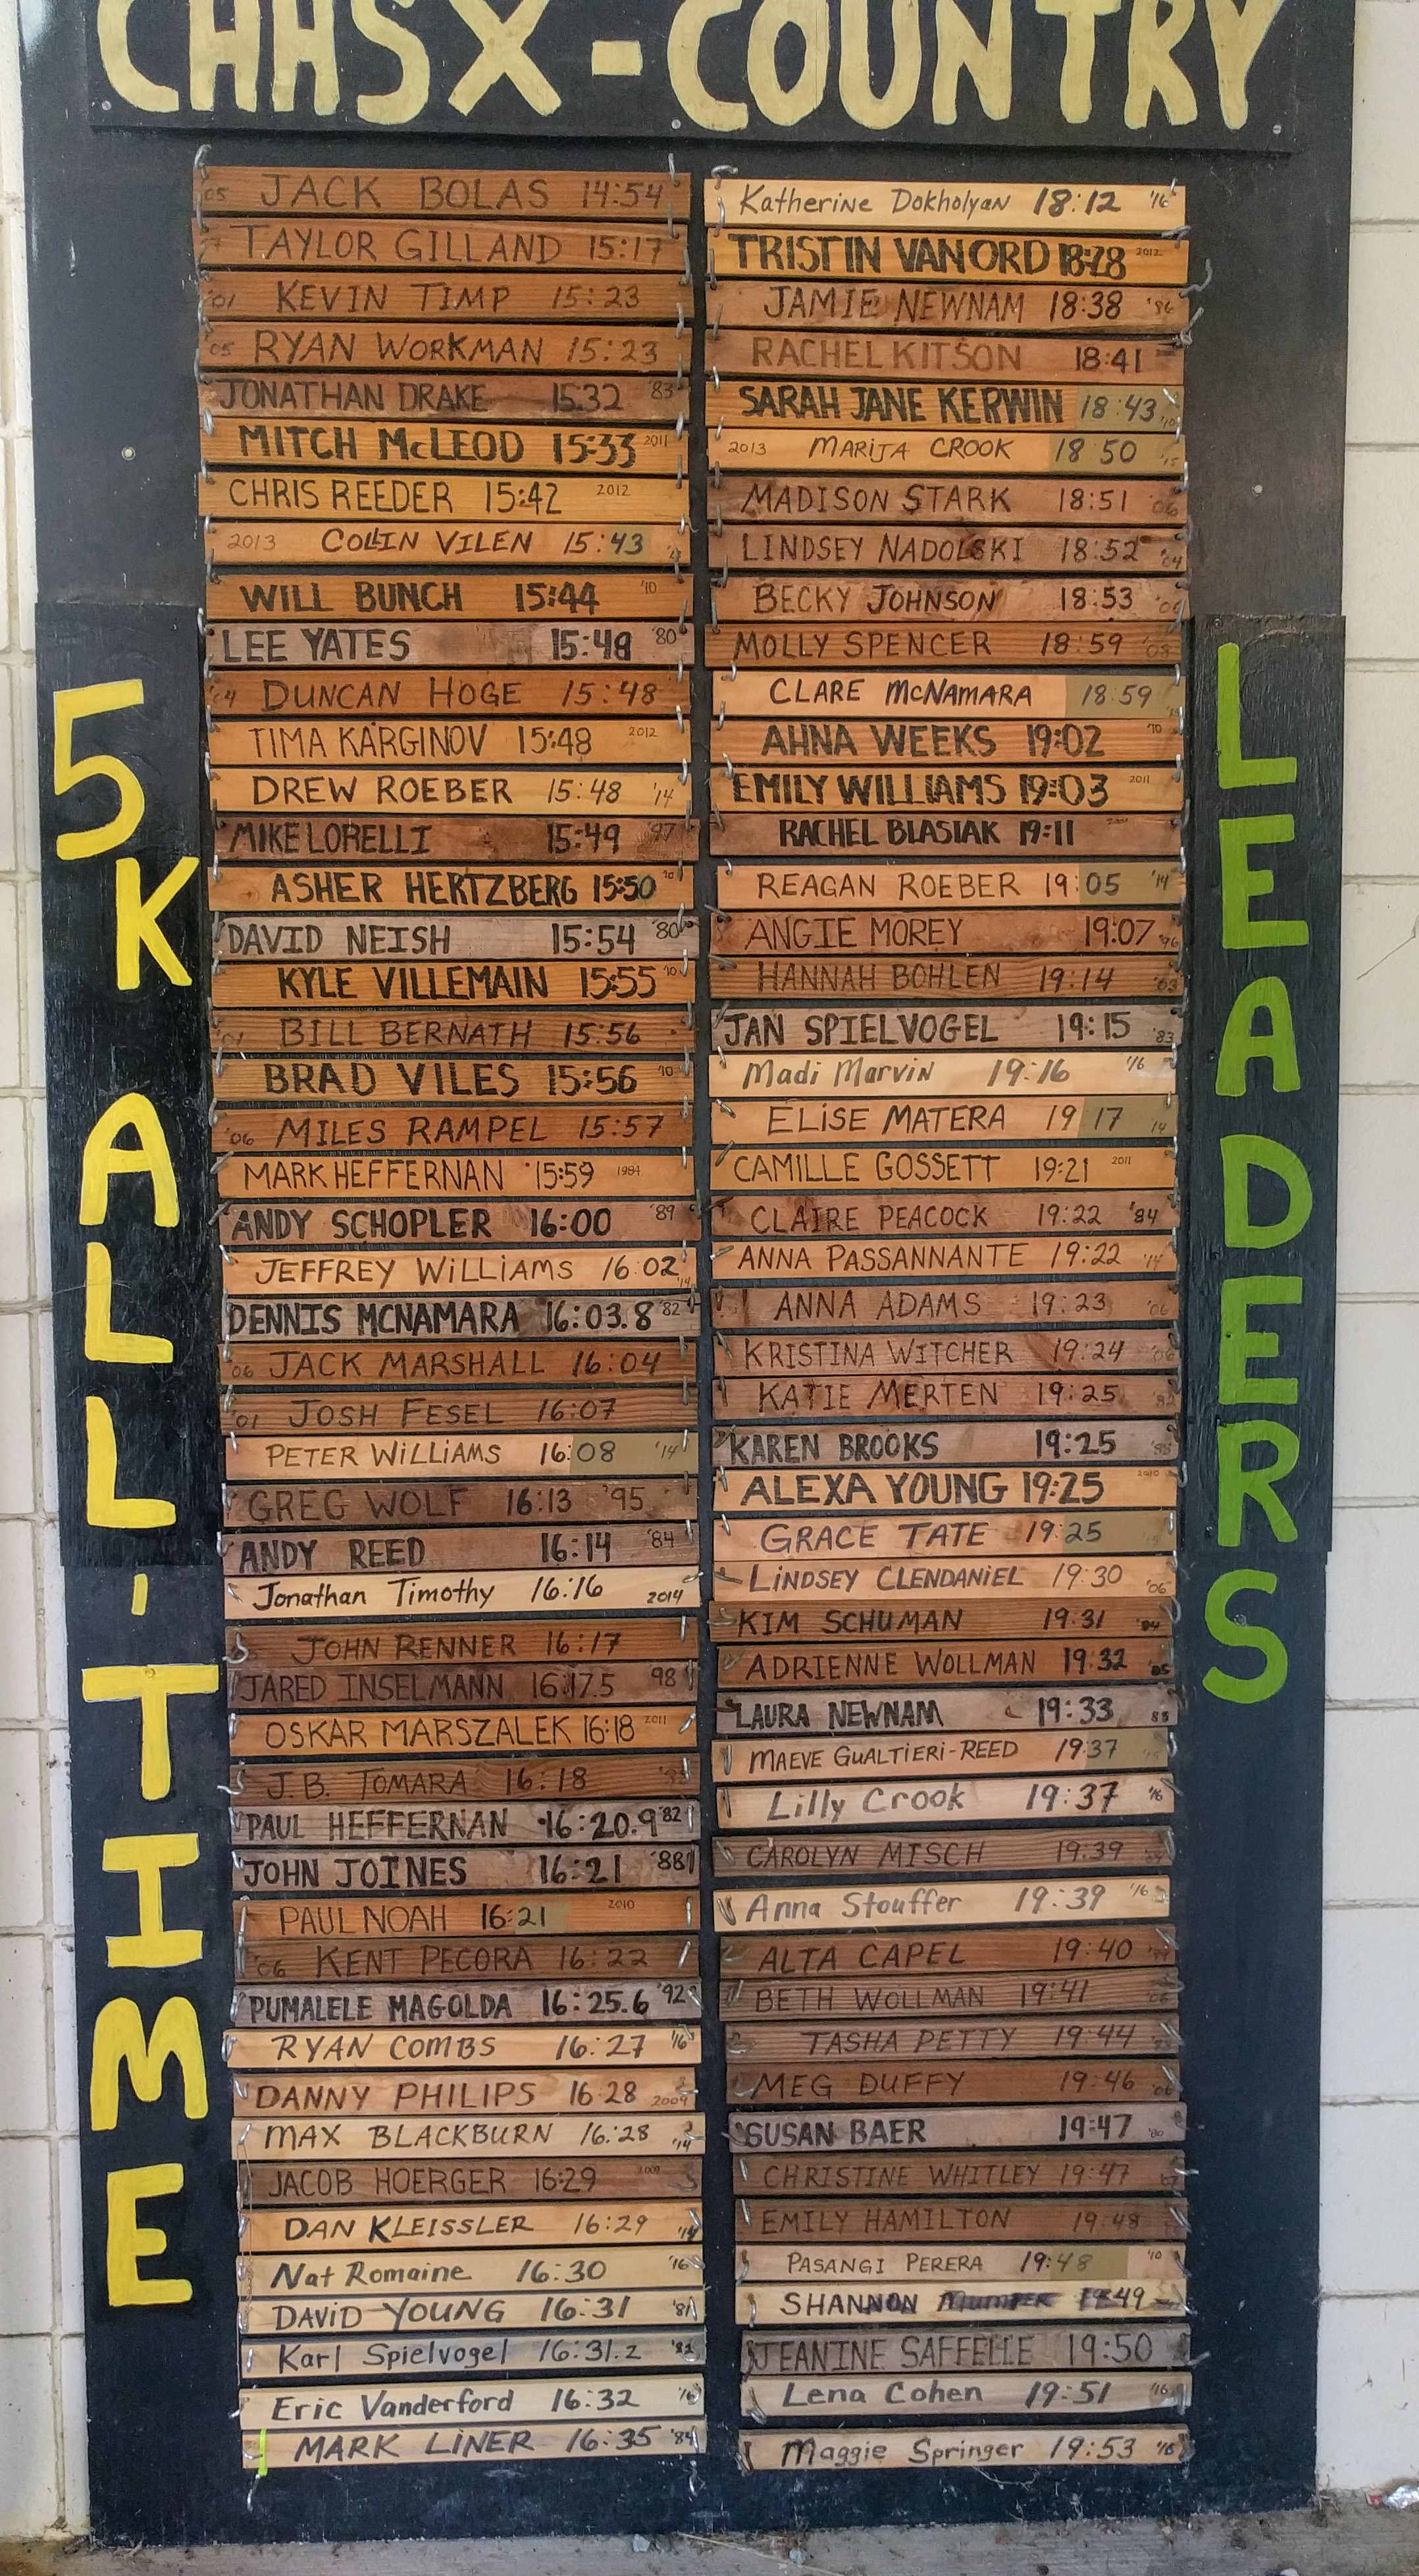 CHHS X-COUNTRY
5K ALL-TIME
LEADERS
'05 JACK BOLAS 14:54
TAYLOR GILLAND 15:17
'01 KEVIN TIMP 15:23
'05 RYAN WORKMAN 15:23
JONATHAN DRAKE 15:32 '83
MITCH McLEOD 15:33 2011
CHRIS REEDER 15:42 2012
2013 COLLIN VILEN 15:43
WILL BUNCH 15:44 '10
LEE YATES 15:48 '80
'04 DUNCAN HOGE 15:48
TIMA KARGINOV 15:48 2012
DREW ROEBER 15:48 '14
MIKE LORELLI 15:49 '97
ASHER HERTZBERG 15:50 '10
DAVID NEISH 15:54 '80
KYLE VILLEMAIN 15:55 '10
'01 BILL BERNATH 15:56
BRAD VILES 15:56 '10
'06 MILES RAMPEL 15:57
MARK HEFFERNAN 15:59 1984
ANDY SCHOPLER 16:00 '89
JEFFREY WILLIAMS 16:02 '14
DENNIS MCNAMARA 16:03.8 '82
'06 JACK MARSHALL 16:04
'01 JOSH FESEL 16:07
PETER WILLIAMS 16:08 '14
GREG WOLF 16:13 '95
ANDY REED 16:14 '84
Jonathan Timothy 16:16 2014
JOHN RENNER 16:17
JARED INSELMANN 16:17.5 98
OSKAR MARSZALEK 16:18 2011
J.B. TOMARA 16:18
PAUL HEFFERNAN 16:20.9 '82
JOHN JOINES 16:21 '88
PAUL NOAH 16:21 2010
'06 KENT PECORA 16:22
PUMALELE MAGOLDA 16:25.6 '92
RYAN COMBS 16:27 '16
DANNY PHILIPS 16:28 2009
MAX BLACKBURN 16:28 '14
JACOB HOERGER 16:29 2009
DAN KLEISSLER 16:29 '14
Nat Romaine 16:30 '16
DAVID YOUNG 16:31 '81
Karl Spielvogel 16:31.2 '82
Eric Vanderford 16:32 '16
MARK LINER 16:35 '84
Katherine Dokholyan 18:12 '16
TRISTIN VANORD 18:28 2012
JAMIE NEWNAM 18:38 '86
RACHEL KITSON 18:41
SARAH JANE KERWIN 18:43 '10
2013 MARIJA CROOK 18:50 '15
MADISON STARK 18:51 '06
LINDSEY NADOLSKI 18:52 '04
BECKY JOHNSON 18:53
MOLLY SPENCER 18:59
CLARE McNAMARA 18:59
AHNA WEEKS 19:02 '10
EMILY WILLIAMS 19:03 2011
RACHEL BLASIAK 19:11
REAGAN ROEBER 19:05 '14
ANGIE MOREY 19:07 '96
HANNAH BOHLEN 19:14 '03
JAN SPIELVOGEL 19:15 '83
Madi Marvin 19:16 '16
ELISE MATERA 19 17 '14
CAMILLE GOSSETT 19:21 2011
CLAIRE PEACOCK 19:22 '84
ANNA PASSANNANTE 19:22 '14
ANNA ADAMS 19:23 '06
KRISTINA WITCHER 19:24 '06
KATIE MERTEN 19:25
KAREN BROOKS 19:25
ALEXA YOUNG 19:25 2010
GRACE TATE 19:25
LINDSEY CLENDANIEL 19:30 '06
KIM SCHUMAN 19:31
ADRIENNE WOLLMAN 19:32 '05
LAURA NEWNAM 19:33
MAEVE GUALTIERI-REED 19:37
Lilly Crook 19:37 '16
CAROLYN MISCH 19:39
Anna Stouffer 19:39 '16
ALTA CAPEL 19:40
BETH WOLLMAN 19:41
TASHA PETTY 19:44
MEG DUFFY 19:46 '06
SUSAN BAER 19:47 '80
CHRISTINE WHITLEY 19:47
EMILY HAMILTON 19:48
PASANGI PERERA 19:48 '10
SHANNON 19:49
JEANINE SAFFELLE 19:50
Lena Cohen 19:51 '16
Maggie Springer 19:53 '16